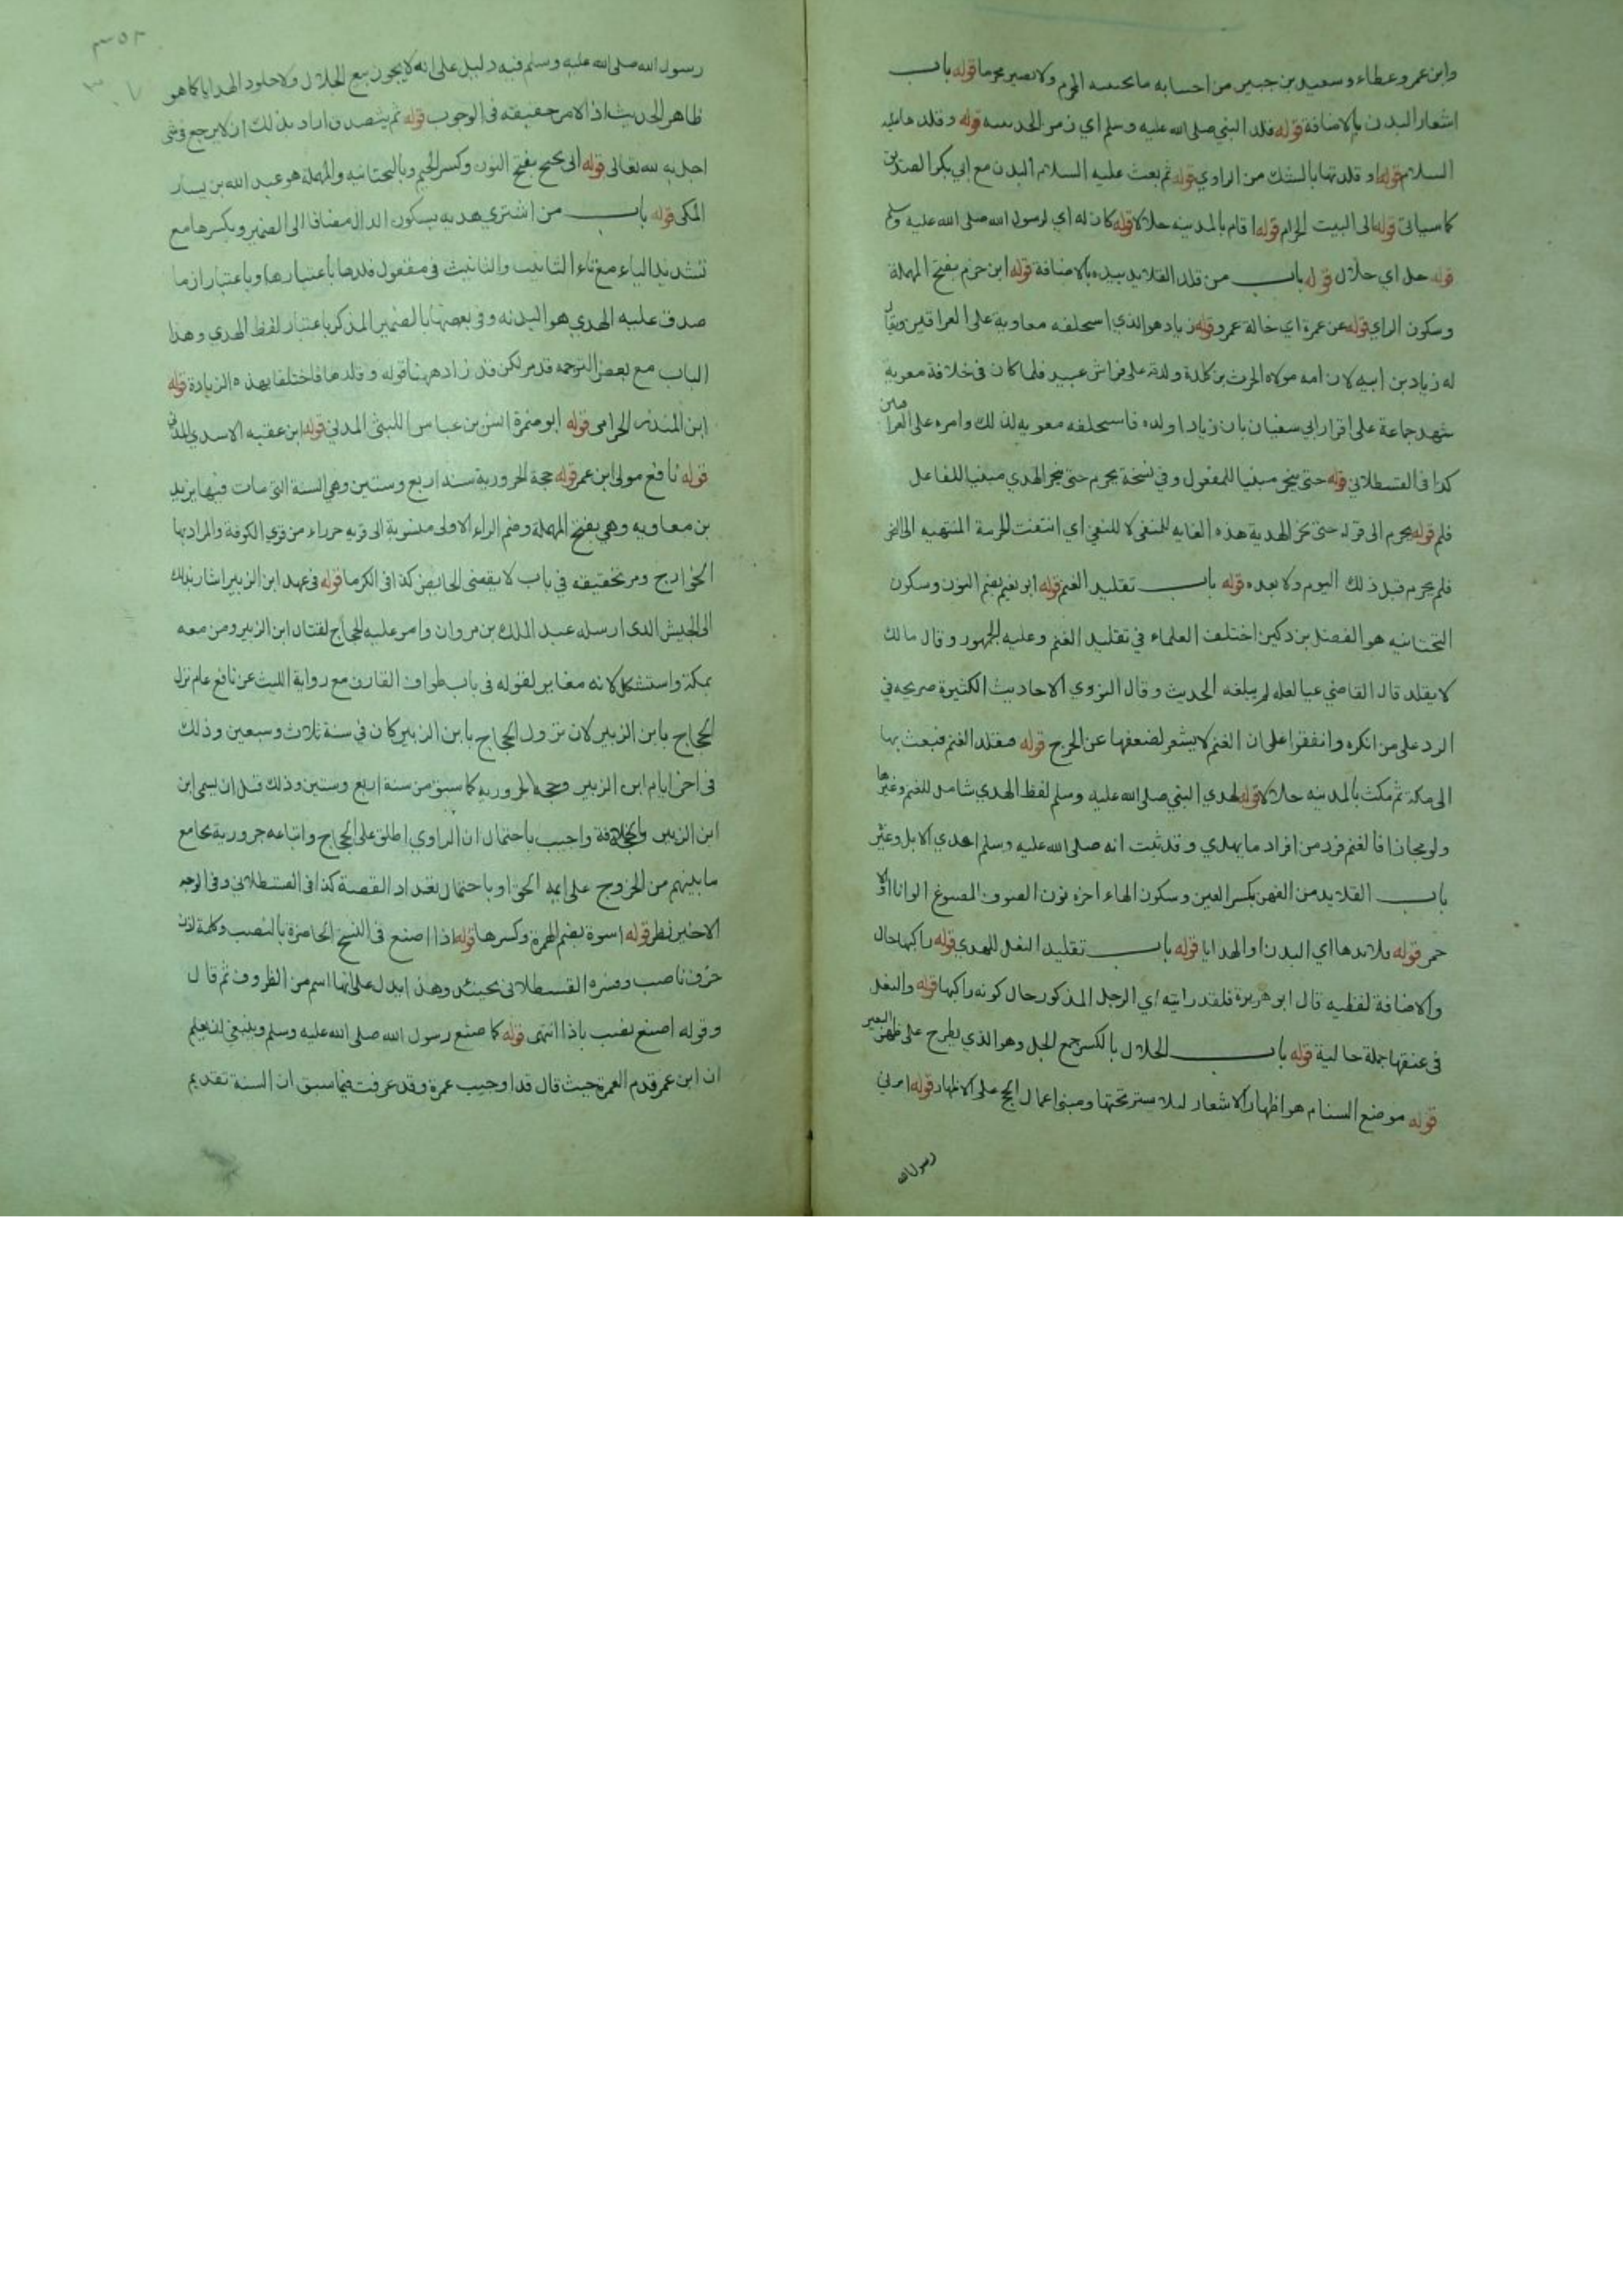 وابن عمر وعطاء وسعيد بن جبير من اجسابه ما يجتنبه المحرم ولا يصير محرما قوله باب
اشعار البدن بالاضافة قوله قلد النبي صلى الله عليه وسلم اي زمن الحديبيه قوله وقلد ها عليه
السلام قوله او قلدتها بالشك من الراوي قوله ثم بعث عليه السلام البدن مع ابي بكر الصديق
كما سياتي قوله الى البيت الحرام قوله اقام بالمدينه حلالا قوله كان له اي لرسول الله صلى الله عليه وسلم
قوله حل اي حلال قوله باب من قلد القلايد بيده بالاضافة قوله ابن حزم بفتح المهملة
وسكون الزاي قوله عن عمرة اي خالة عمرو قوله زياد هو الذي استخلفه معاوية على العراقين ويقال
له زياد بن ابيه لان امه مولاه الحرث بن كلدة ولدته على فراش عبيد فلما كان في خلافة معوية
شهد جماعة على اقرار ابي سفيان بان زيادا ولده فاستحلفه معويه لذلك وامره على العراقين
كذا في القسطلاني قوله حتى ينحر مبنيا للمفعول وفي نسخة يحرم حتى ينحر الهدي مبنيا للفاعل
فلم قوله يحرم الى قوله حتى نحر الهدية هذه الغايه للمنفي لا للنفي اي انتفت الحرمة المنتهيه الى النحر
فلم يحرم قبل ذلك اليوم ولا بعده قوله باب تقليد الغنم قوله ابو نعيم بضم النون وسكون
التحتانيه هو الفضل بن دكين اختلف العلماء في تقليد الغنم وعليه الجمهور وقال مالك
لا يقلد قال القاضي عيا لعله لم يبلغه الحديث وقال النووي الاحاديث الكثيرة صريحه في
الرد على من انكره واتفقوا على ان الغنم لا يشعر لضعفها عن الجرح قوله فيقلد الغنم فيبعث بها
الى مكة ثم مكث بالمدينه حلالا قوله لهدي النبي صلى الله عليه وسلم لفظ الهدي شامل للغنم وغيرها
ولو مجازا فالغنم فرد من افراد ما يهدي وقد ثبت انه صلى الله عليه وسلم اهدي الابل وغيره
باب القلايد من العهن بكسر العين وسكون الهاء اخره نون الصوف المصبوغ الوانا او الا
حمر قوله قلائدها اي البدن او الهدايا قوله باب تقليد النعل للهدي قوله راكبها حال
والاضافة لفظيه قال ابو هريرة فلقد رايته اي الرجل المذكور حال كونه راكبها قوله والنعل
في عنقها جملة حالية قوله باب الجلال بالكسر جمع الجل وهو الذي يطرح على ظهر البعير
قوله موضع السنام هو اظهار الاشعار ليلا يستر تحتها ومبنى اعمال الحج على الاظهار قوله امرني
رسول الله
٣٥٢
٣٠٧
رسول الله صلى الله عليه وسلم فيه دليل على انه لا يجوز بيع الجلال ولا جلود الهدايا كما هو
ظاهر الحديث اذ الامر حقيقته في الوجوب قوله ثم يتصدق اراد بذلك ان لا يرجع في شي
اجل به لله تعالى قوله ابي نجيح بفتح النون وكسر الجيم وبالتحتانيه والمهملة هو عبد الله بن يسار
المكي قوله باب من اشتري هديه بسكون الدال مضافا الى الضمير وبكسرها مع
تشديد الياء مع تاء التانيث والتانيث في مفعول قلدها باعتبارها وباعتبار ان ما
صدق عليه الهدي هو البدنه وفي بعضها بالضمير المذكر باعتبار لفظ الهدي وهذا
الباب مع بعض الترجمه قد مر لكن قد زاد ههنا قوله وقلدها فاختلفا بهذه الزيادة قوله
ابن المنذر الحزامي قوله ابو ضمرة انس بن عياض الليثي المدني قوله ابن عقبه الاسدي المدني
قوله نافع مولى ابن عمر قوله حجة الحرورية سنة اربع وستين وهي السنة التي مات فيها يزيد
بن معاويه وهي بفتح المهملة وضم الراء الاولى منسوبة الى قرية حروراء من قري الكوفة والمراد بها
الخوارج ومر تحقيقه في باب لا يقضي الحايض كذا في الكرما قوله في عهد ابن الزبير اشار بذلك
الى الجيش الذي ارسله عبد الملك بن مروان وامر عليه الحجاج لقتال ابن الزبير ومن معه
بمكة واستشكل لانه مغاير لقوله في باب طواف القارن مع رواية الليث عن نافع عام نزل
الحجاج بابن الزبير لان نزول الحجاج بابن الزبير كان في سنة ثلاث وسبعين وذلك
في اخر ايام ابن الزبير وحجة الحرورية كما سبق من سنة اربع وستين وذلك قبل ان يسمى ابن
ابن الزبير بالخلافة واجيب باحتمال ان الراوي اطلق على الحجاج واتباعه حرورية بجامع
ما بينهم من الخروج على ايمة الحق او باحتمال تعداد القصة كذا في القسطلاني وفي الوجه
الاخير نظر قوله اسوة بضم الهمزة وكسرها قوله اذا اصنع في النسخ الحاضرة بالنصب وكلمة اذن
حرف ناصب وفسره القسطلاني بحينئذ وهذا يدل على انها اسم من الظروف ثم قال
وقوله اصنع نصب باذا انتهى قوله كما صنع رسول الله صلى الله عليه وسلم وينبغي ان يعلم
ان ابن عمر قدم العمرة حيث قال قد اوجبت عمرة وقد عرفت فيما سبق ان السنة تقديم